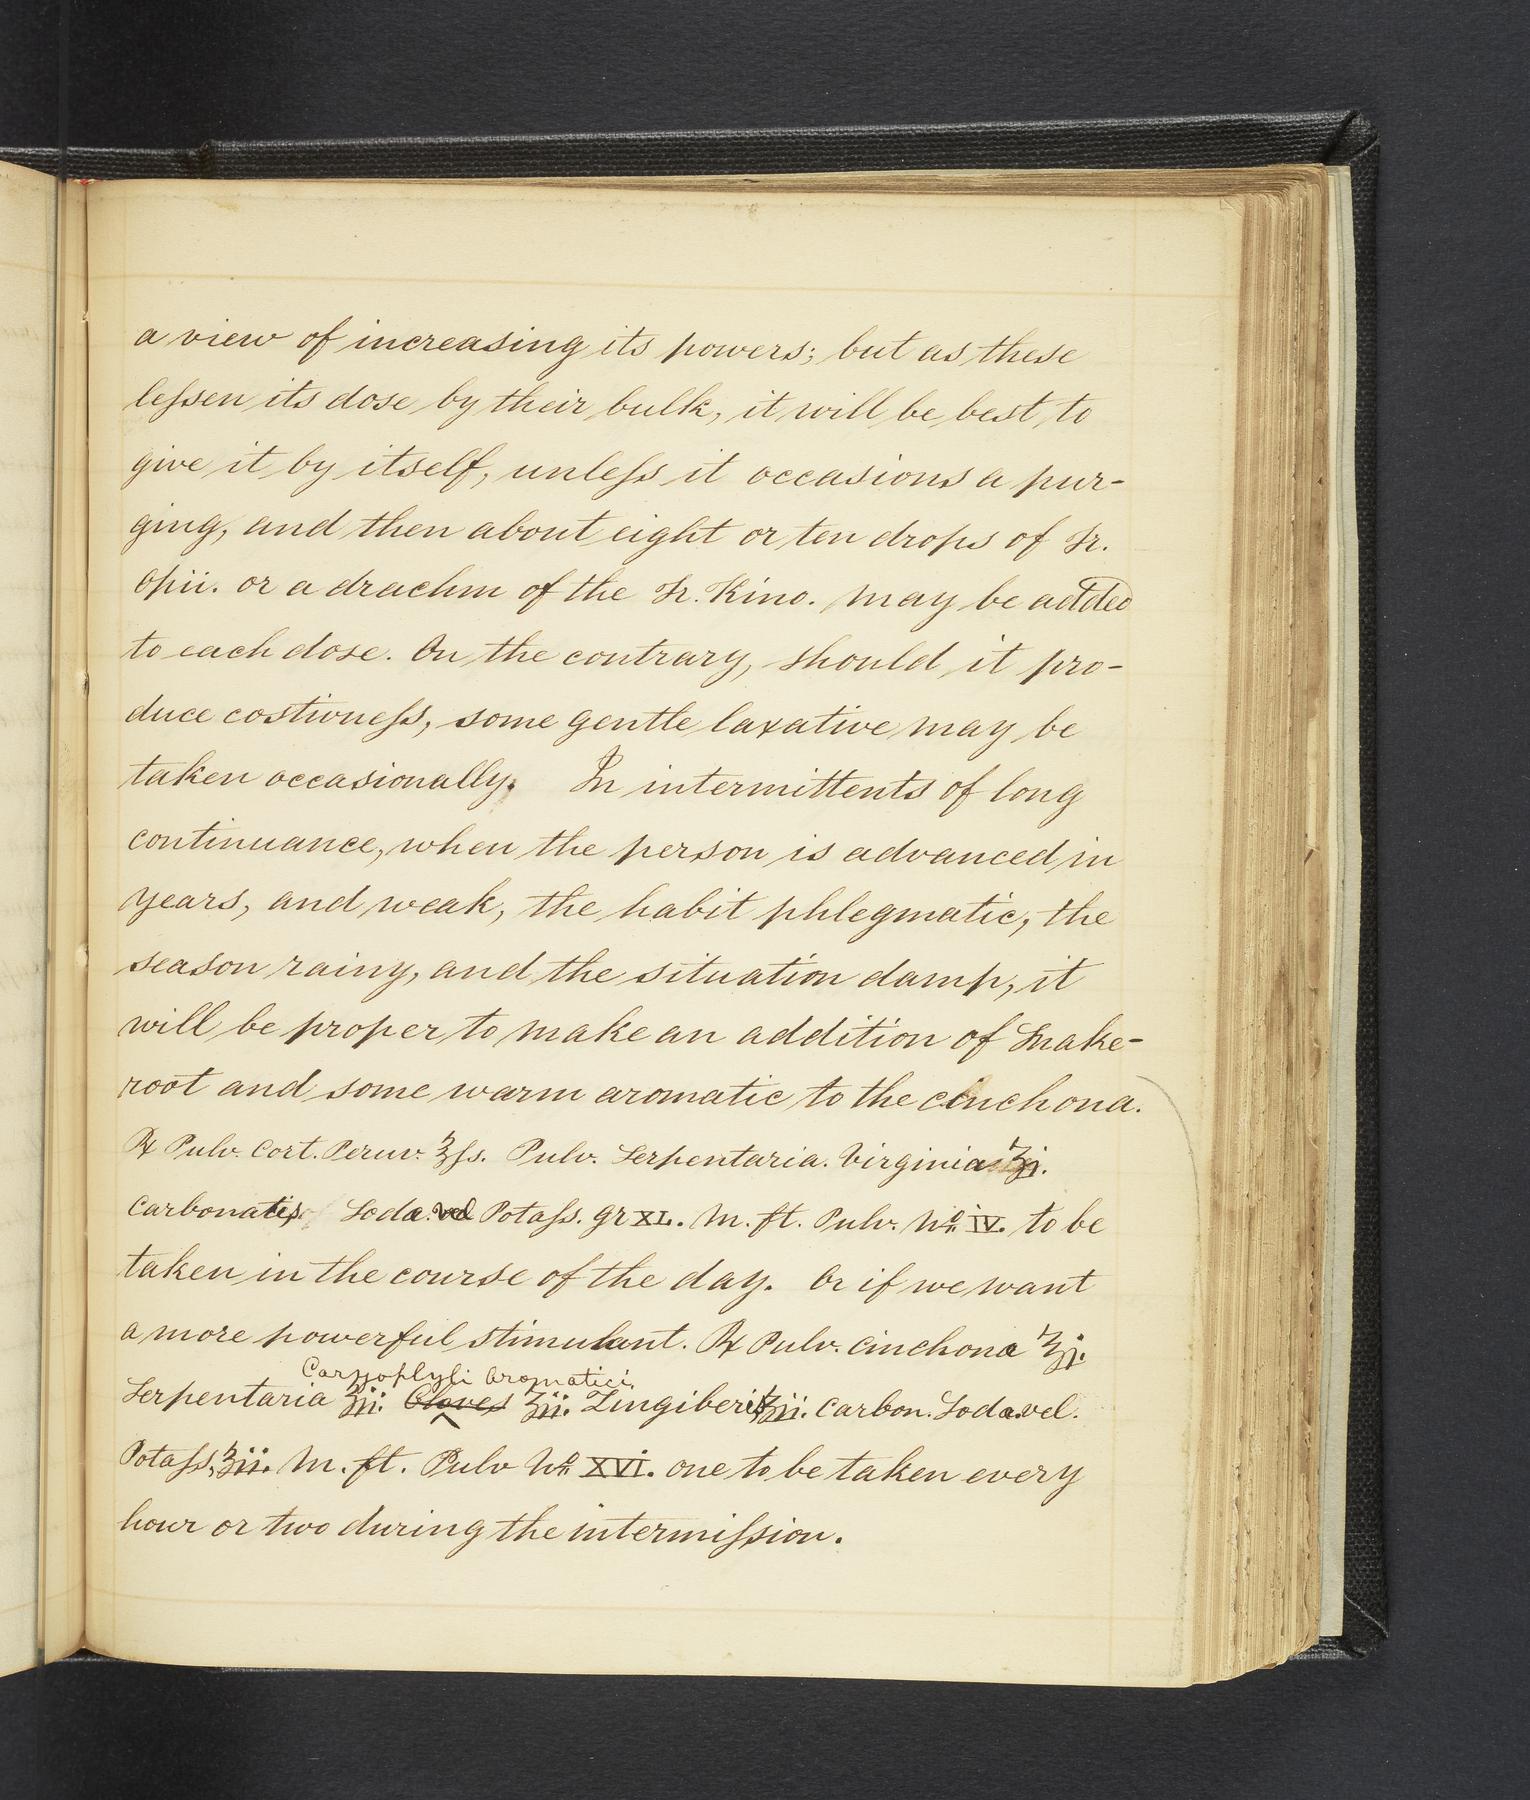 a view of increasing its powers; but as these
leſsen its dose by their bulk, it will be best to
give it by itself, unleſs it occasions a pur-
ging, and then about eight or ten drops of Tr.
Opii. or a drachm of the Tr. Kino. may be added
to each dose. On the contrary, should it pro-
duce costiveneſs, some gentle laxative may be
taken occasionally. In intermittents of long
continuance, when the person is advanced in
years, and weak, the habit phlegmatic, the
season rainy, and the situation damp, it
will be proper to make an addition of Snake-
root and some warm aromatic to the cinchona.
℞ Pulv. Cort. Peruv. ℥ſs. Pulv. Serpentaria. Virginia ʒj.
Carbonatis Soda. vel Potaſs. gr XL. M. ft. Pulv. No. IV. to be
taken in the course of the day. Or if we want
a more powerful stimulant. ℞ Pulv. Cinchona ℥j.
Caryophyli Aromatici
Serpentaria ʒij. Cloves ʒij. Zingiberis ʒij. Carbon. Soda. vel.
Potaſs. ʒij. M. ft. Pulv No. XVI. one to be taken every
hour or two during the intermiſsion.